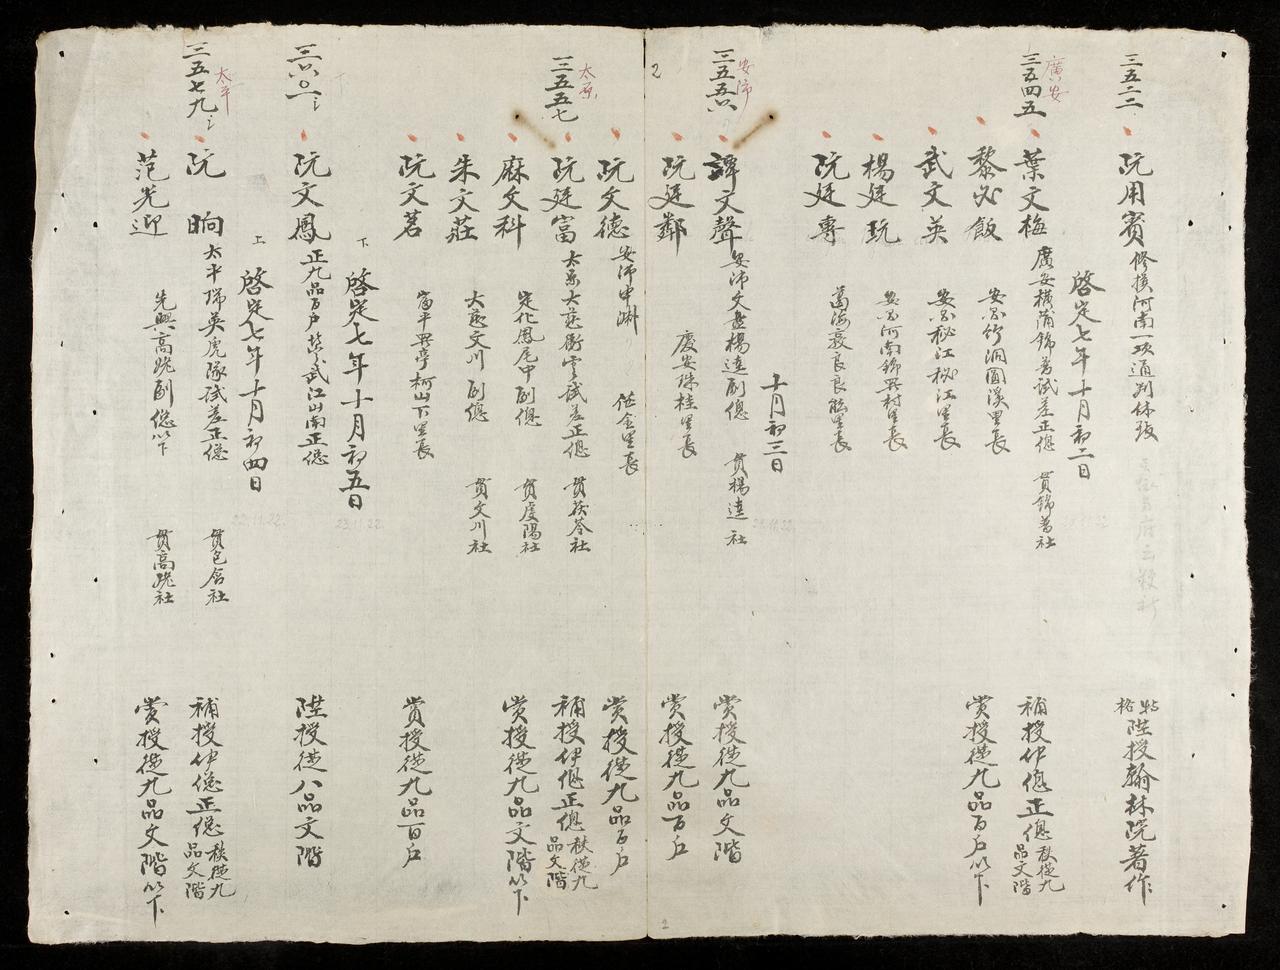 三五二二
阮用賓 修撰河南一項通判休致
陞授翰林院著作
啓定七年十月初二日
廣安
三五四五
葉文梅 廣安橫蒲錦普試差正總 貫錦普社
補授伊總正總秩從九品文階
黎必飯 安密竹洞圓溪里長
賞授從九品百戶以下
武文英 安密秘江秘江里長
楊廷玩 安密河南錦界村里長
阮廷專 萬海襄良良能里長
十月初三日
安沛
三五五六
譚文聲 安沛文盘楊逵副總 貫楊逵社
賞授從九品文階
2
阮廷鄰 慶安珠桂里長
賞授從九品百戶
阮文德 安沛中淋 里長
賞授從九品百戶
太原
三五五七
阮廷富 太原大慈 試差正總 貫茯苓社
補授伊總正總秩從九品文階
麻文科 定化鳳尾中副總 貫慶陽社
賞授從九品文階以下
朱文莊 大慈文川副總 貫文川社
阮文茗 富平 亭柯山下里長
賞授從九品百戶
下 啓定七年十月初五日
三六〇一
阮文鳳 正九品百戶 武江山南正總
陞授從八品文階
上 啓定七年十月初四日
太平
三五七九
阮晌 太平瑞英虎隊試差正總 貫包含社
補授伊總正總秩從九品文階
范光迎 先興高跪副總以下 貫高跪社
賞授從九品文階以下
22.11.22
23.11.22
2